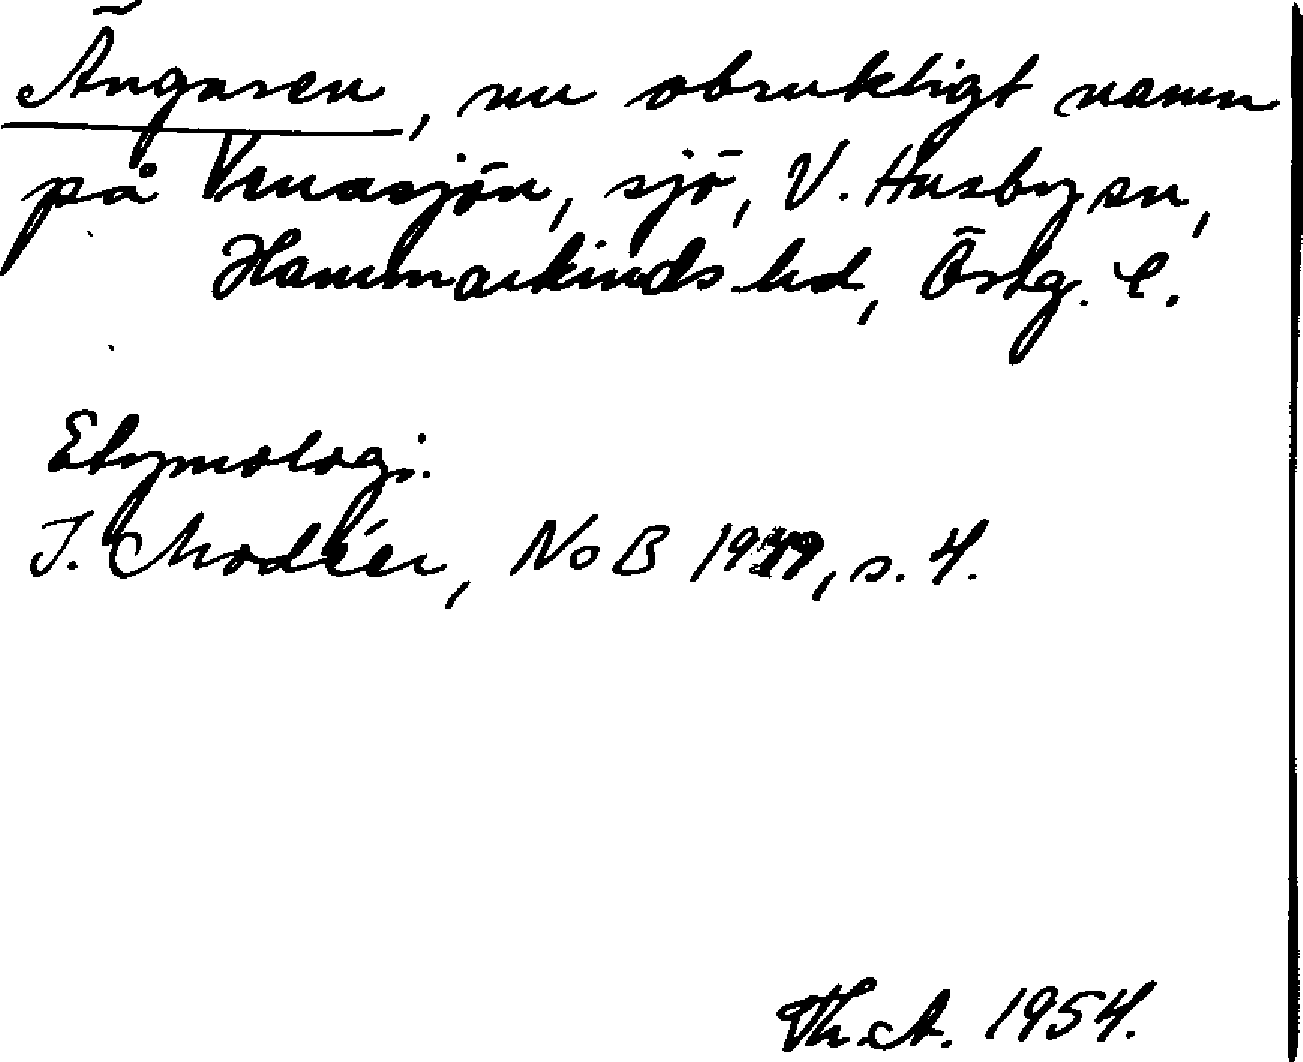 Ängaren, nu obrukligt namn
på Vrenasjön, sjö, V. Husby sn,
Hammarkinds hd, Östg. l.
Etymologi.
I. Modéer, NoB 1949, s. 4.
Th. A. 1954.